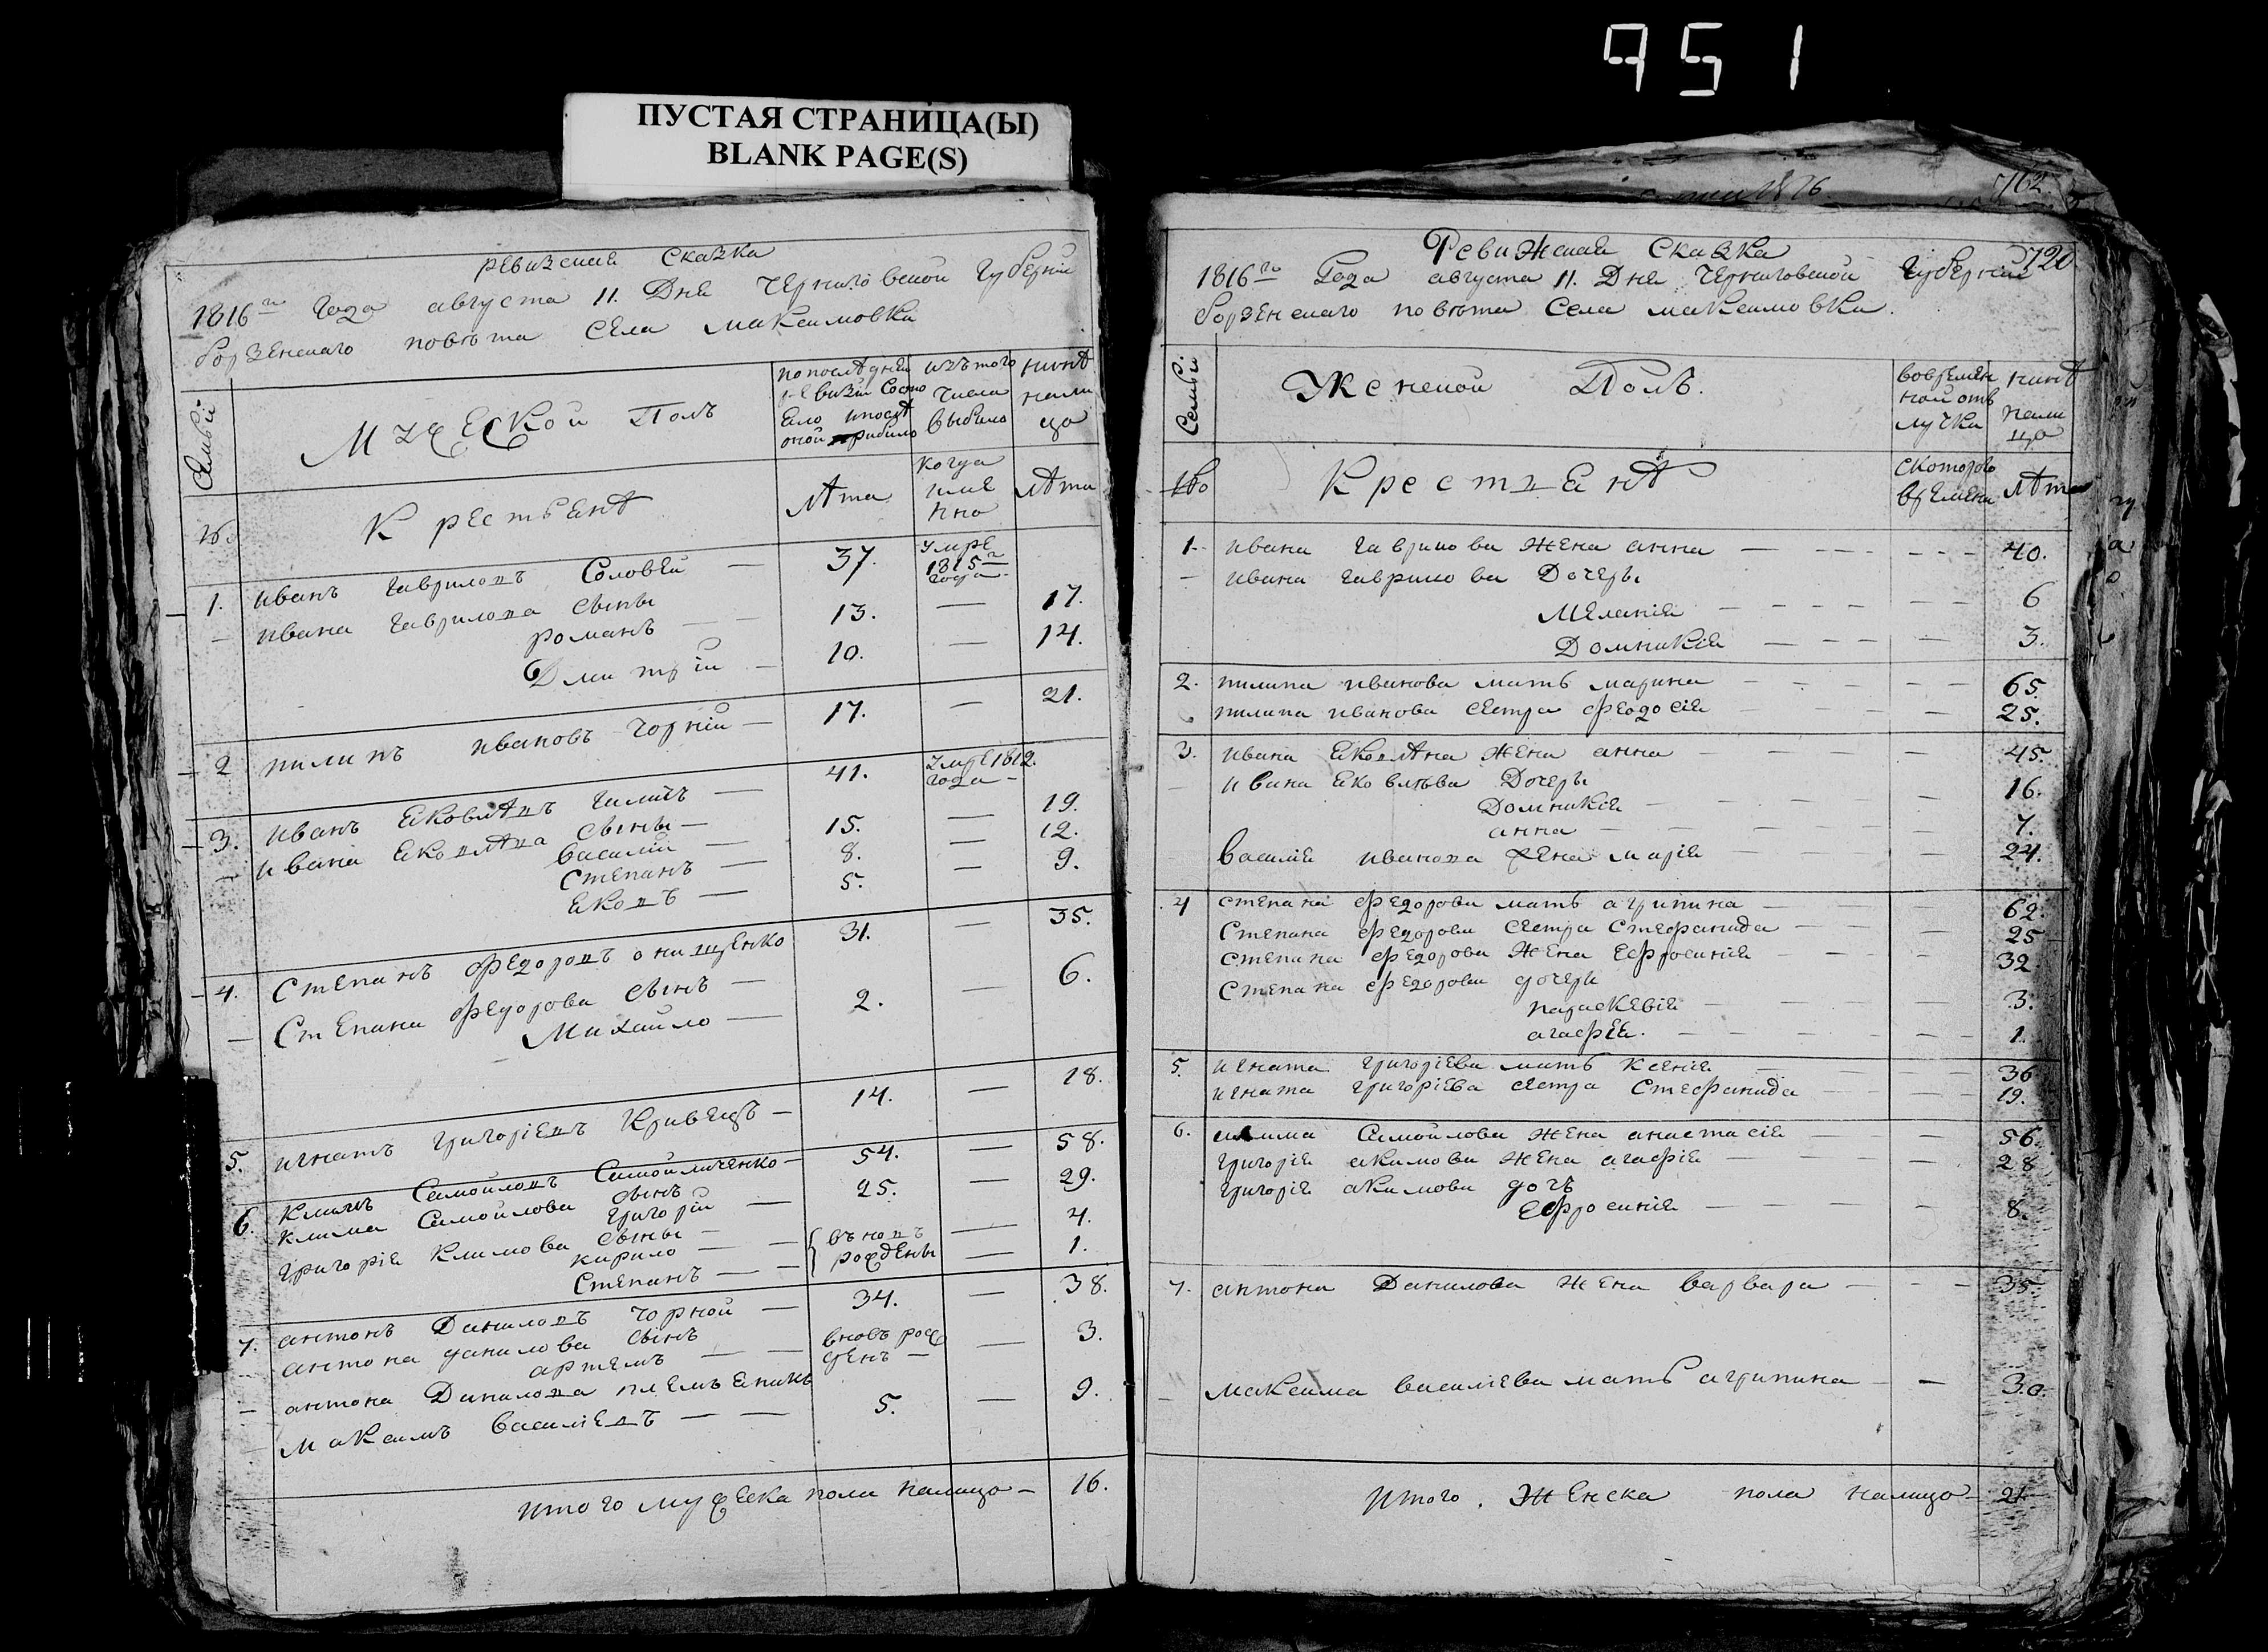 951
ПУСТАЯ СТРАНИЦА(Ы)
BLANK PAGE(S)
ревизская Сказка
1816го Года августа 11. Дня Черниговской Губерніи
борзенского повѣта Села максимовки
Семьи
Мужеской Полъ
по последней ревизіи состояло и после оной прибыло
изъ того числа выбыло
нинѣ налицо
№.
Крестьянѣ
лѣта
когда имянно
лѣта
1. иванъ гавриловъ Соловей — 37. умре 1815го года
— ивана гаврилова сыны
романъ — 13. — 17.
Дмитрій — 10. — 14.
2 пилипъ ивановъ чорній — 17. — 21.
3. иванъ яковлѣвъ — 41. умре 1812. года —
— ивана яковлѣва сыны —
василій — 15. — 19.
Степанъ — 8. — 12.
яковъ — 5. — 9.
4. Степанъ федоровъ онищенко 31. — 35.
— Степана федорова сынъ —
Михайло — 2. — 6.
5. игнатъ григоріевъ Кривецъ — 14. — 18.
6. климъ Самойловъ Самойличенко — 54. — 58.
клима Самойлова сынъ
григорій — 25. — 29.
григорія климова сыны —
кирило — въновъ — 4.
Степанъ — рождены — 1.
7. антонъ Даниловъ чорной — 34. — 38.
антона данилова сынъ
артемъ — вновъ рожденъ — — 3.
— антона Данилова племъяникъ
максимъ василіевъ — 5. — 9.
итого мужеска пола налицо — 16.
762.
720
Ревижская Сказка
1816го Года августа 11. Дня Черниговской Губерніи
борзенского повѣта Села максимовки.
Семьи
Женской Полъ.
вовремянной отлучки
нинѣ налицо
№
Крестьянѣ
скоторого времяни
лѣта
1. ивана гаврилова жена анна — 40.
— ивана гаврилова Дочеры
Меланія — 6
Домникія — 3.
2. пилипа иванова мать марина — 65.
пилипа иванова сестра феодосія — 25.
3. ивана яковлѣва жена анна — 45.
ивана яковлѣва Дочеры
Домникія — 16.
анна — 7.
василія иванова жена марія — 24.
4 степана федорова мать агрипина — 62.
Степана федорова сестра Стефанида — 25
степана федорова жена Ефросинія — 32.
степана федорова дочеры
параскевія — 3.
агафія. — 1.
5. игната григоріева мать ксенія — 36
игната григоріева сестра Стефанида — 19.
6. клима Самойлова жена анастасія — 56.
григорія акимова жена агафія — 28
григорія акимова дочъ
Ефросинія — 8.
7. антона Данилова жена варвара — 35.
— максима василіева мать агрипина — 30.
Итого. Женска пола налицо — 21